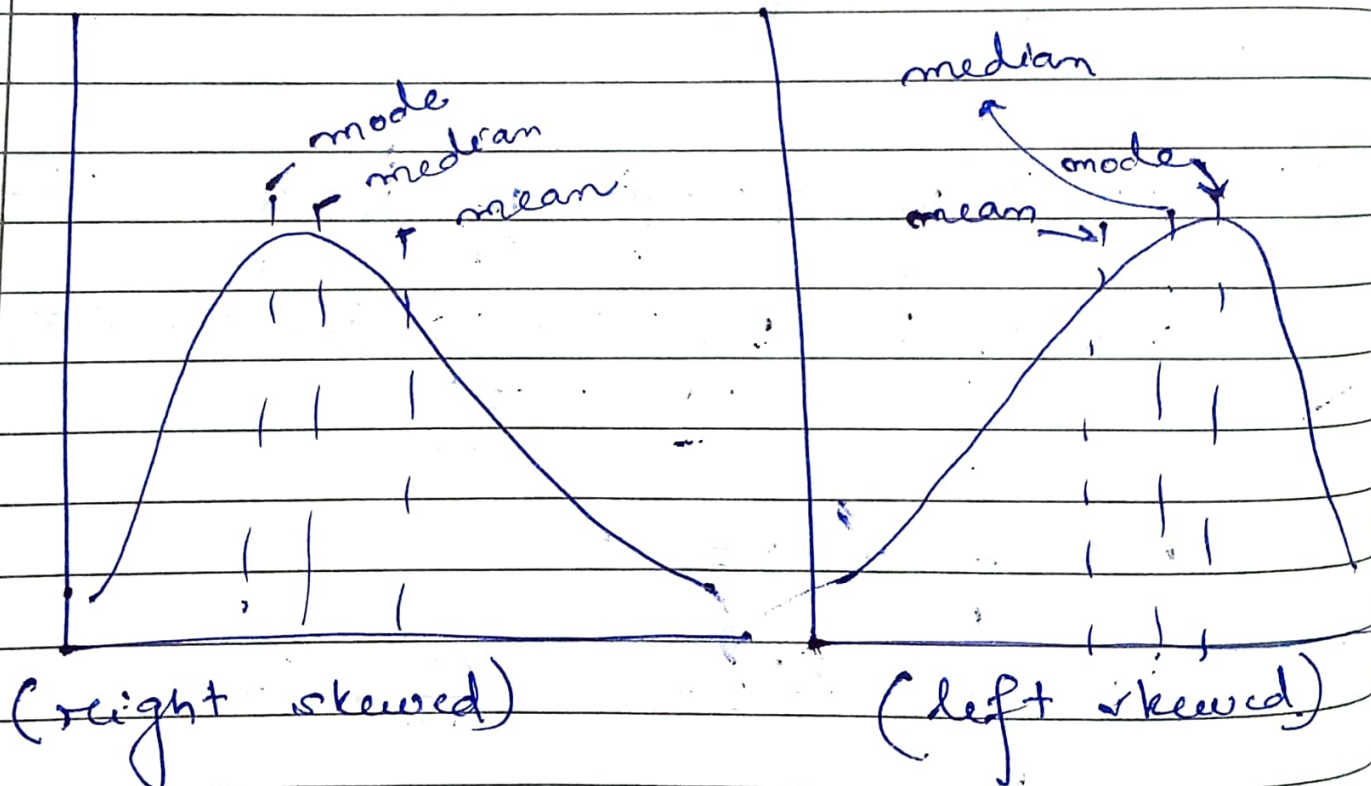 mode
median
mean
(right skewed)
median
mode
mean
(left skewed)